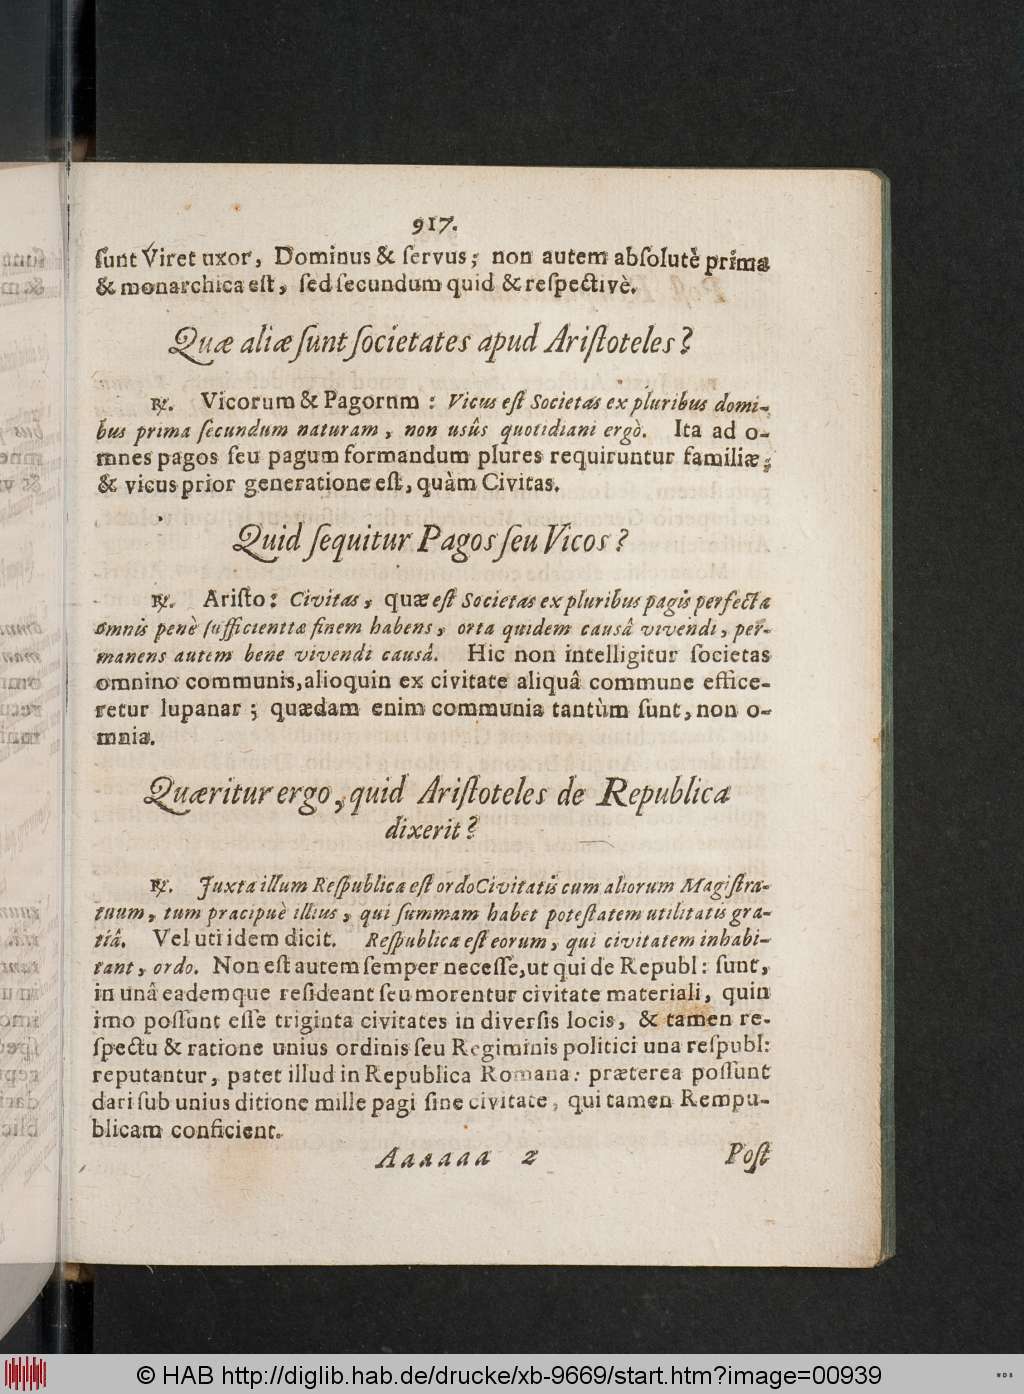 917.
ſunt Viret uxor, Dominus & ſervus; non autem abſolutè prima
& monarchica eſt, ſed ſecundum quid & reſpectivè.
Quæ aliæ ſunt ſocietates apud Ariſtoteles?
℞. Vicorum & Pagorum: Vicus eſt Societas ex pluribus domi-
bus prima ſecundum naturam, non usûs quotidiani ergò. Ita ad o-
mnes pagos ſeu pagum formandum plures requiruntur familiæ;
& vicus prior generatione eſt, quàm Civitas.
Quid ſequitur Pagos ſeu Vicos?
℞. Ariſto: Civitas, quæ eſt Societas ex pluribus pagis perfecta
omnis penè ſufficientia finem habens, orta quidem causâ vivendi, per-
manens autem bene vivendi causâ. Hic non intelligitur ſocietas
omnino communis, alioquin ex civitate aliquâ commune effice-
retur lupanar; quædam enim communia tantùm ſunt, non o-
mnia.
Quæritur ergo, quid Ariſtoteles de Republica
dixerit?
℞. Juxta illum Reſpublica eſt ordo Civitatis cum aliorum Magiſtra-
tuum, tum præcipuè illius, qui ſummam habet poteſtatem utilitatis gra-
tiâ. Vel uti idem dicit. Reſpublica eſt eorum, qui civitatem inhabi-
tant, ordo. Non eſt autem ſemper neceſſe, ut qui de Republ: ſunt,
in unâ eademque reſideant ſeu morentur civitate materiali, quin
imo poſſunt eſſe triginta civitates in diverſis locis, & tamen re-
ſpectu & ratione unius ordinis ſeu Regiminis politici una reſpubl:
reputantur, patet illud in Republica Romana: præterea poſſunt
dari ſub unius ditione mille pagi ſine civitate, qui tamen Rempu-
blicam conficient.
Aaaaaa 2 Poſt
© HAB http://diglib.hab.de/drucke/xb-9669/start.htm?image=00939